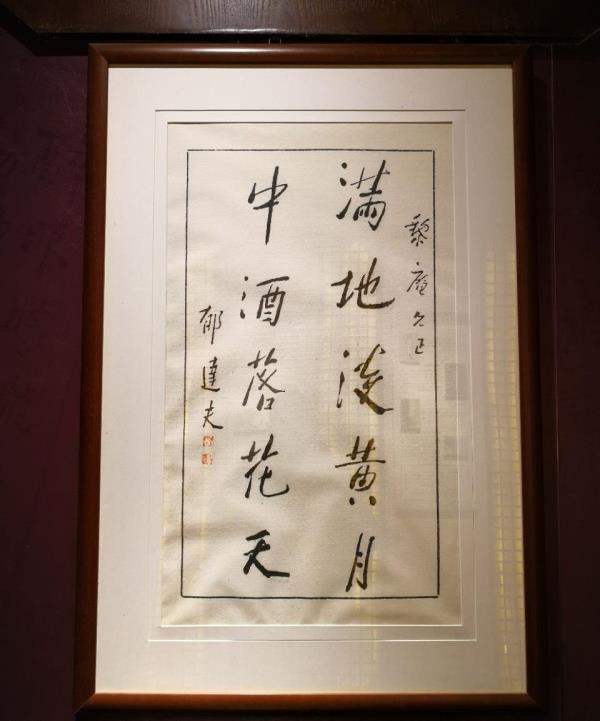 黎庵久正
满地淡黄月
中酒落花天
郁達夫